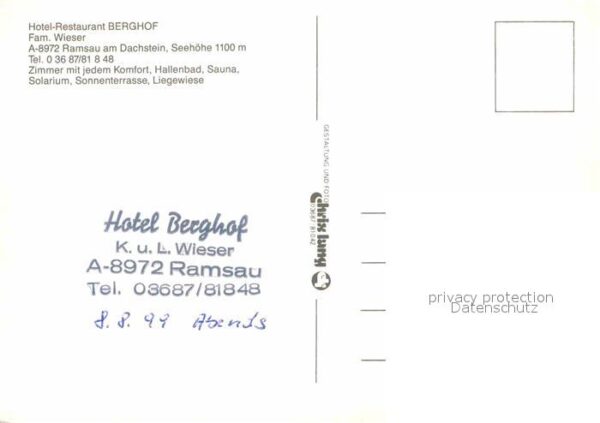 Hotel-Restaurant BERGHOF
Fam. Wieser
A-8972 Ramsau am Dachstein, Seehöhe 1100 m
Tel. 0 36 87/81 8 48
Zimmer mit jedem Komfort, Hallenbad, Sauna,
Solarium, Sonnenterrasse, Liegewiese
GESTALTUNG UND FOTO:
03687/81042
Hotel Berghof
K. u. L. Wieser
A-8972 Ramsau
Tel. 03687/81848
8. 8. 99 Abends
privacy protection
Datenschutz